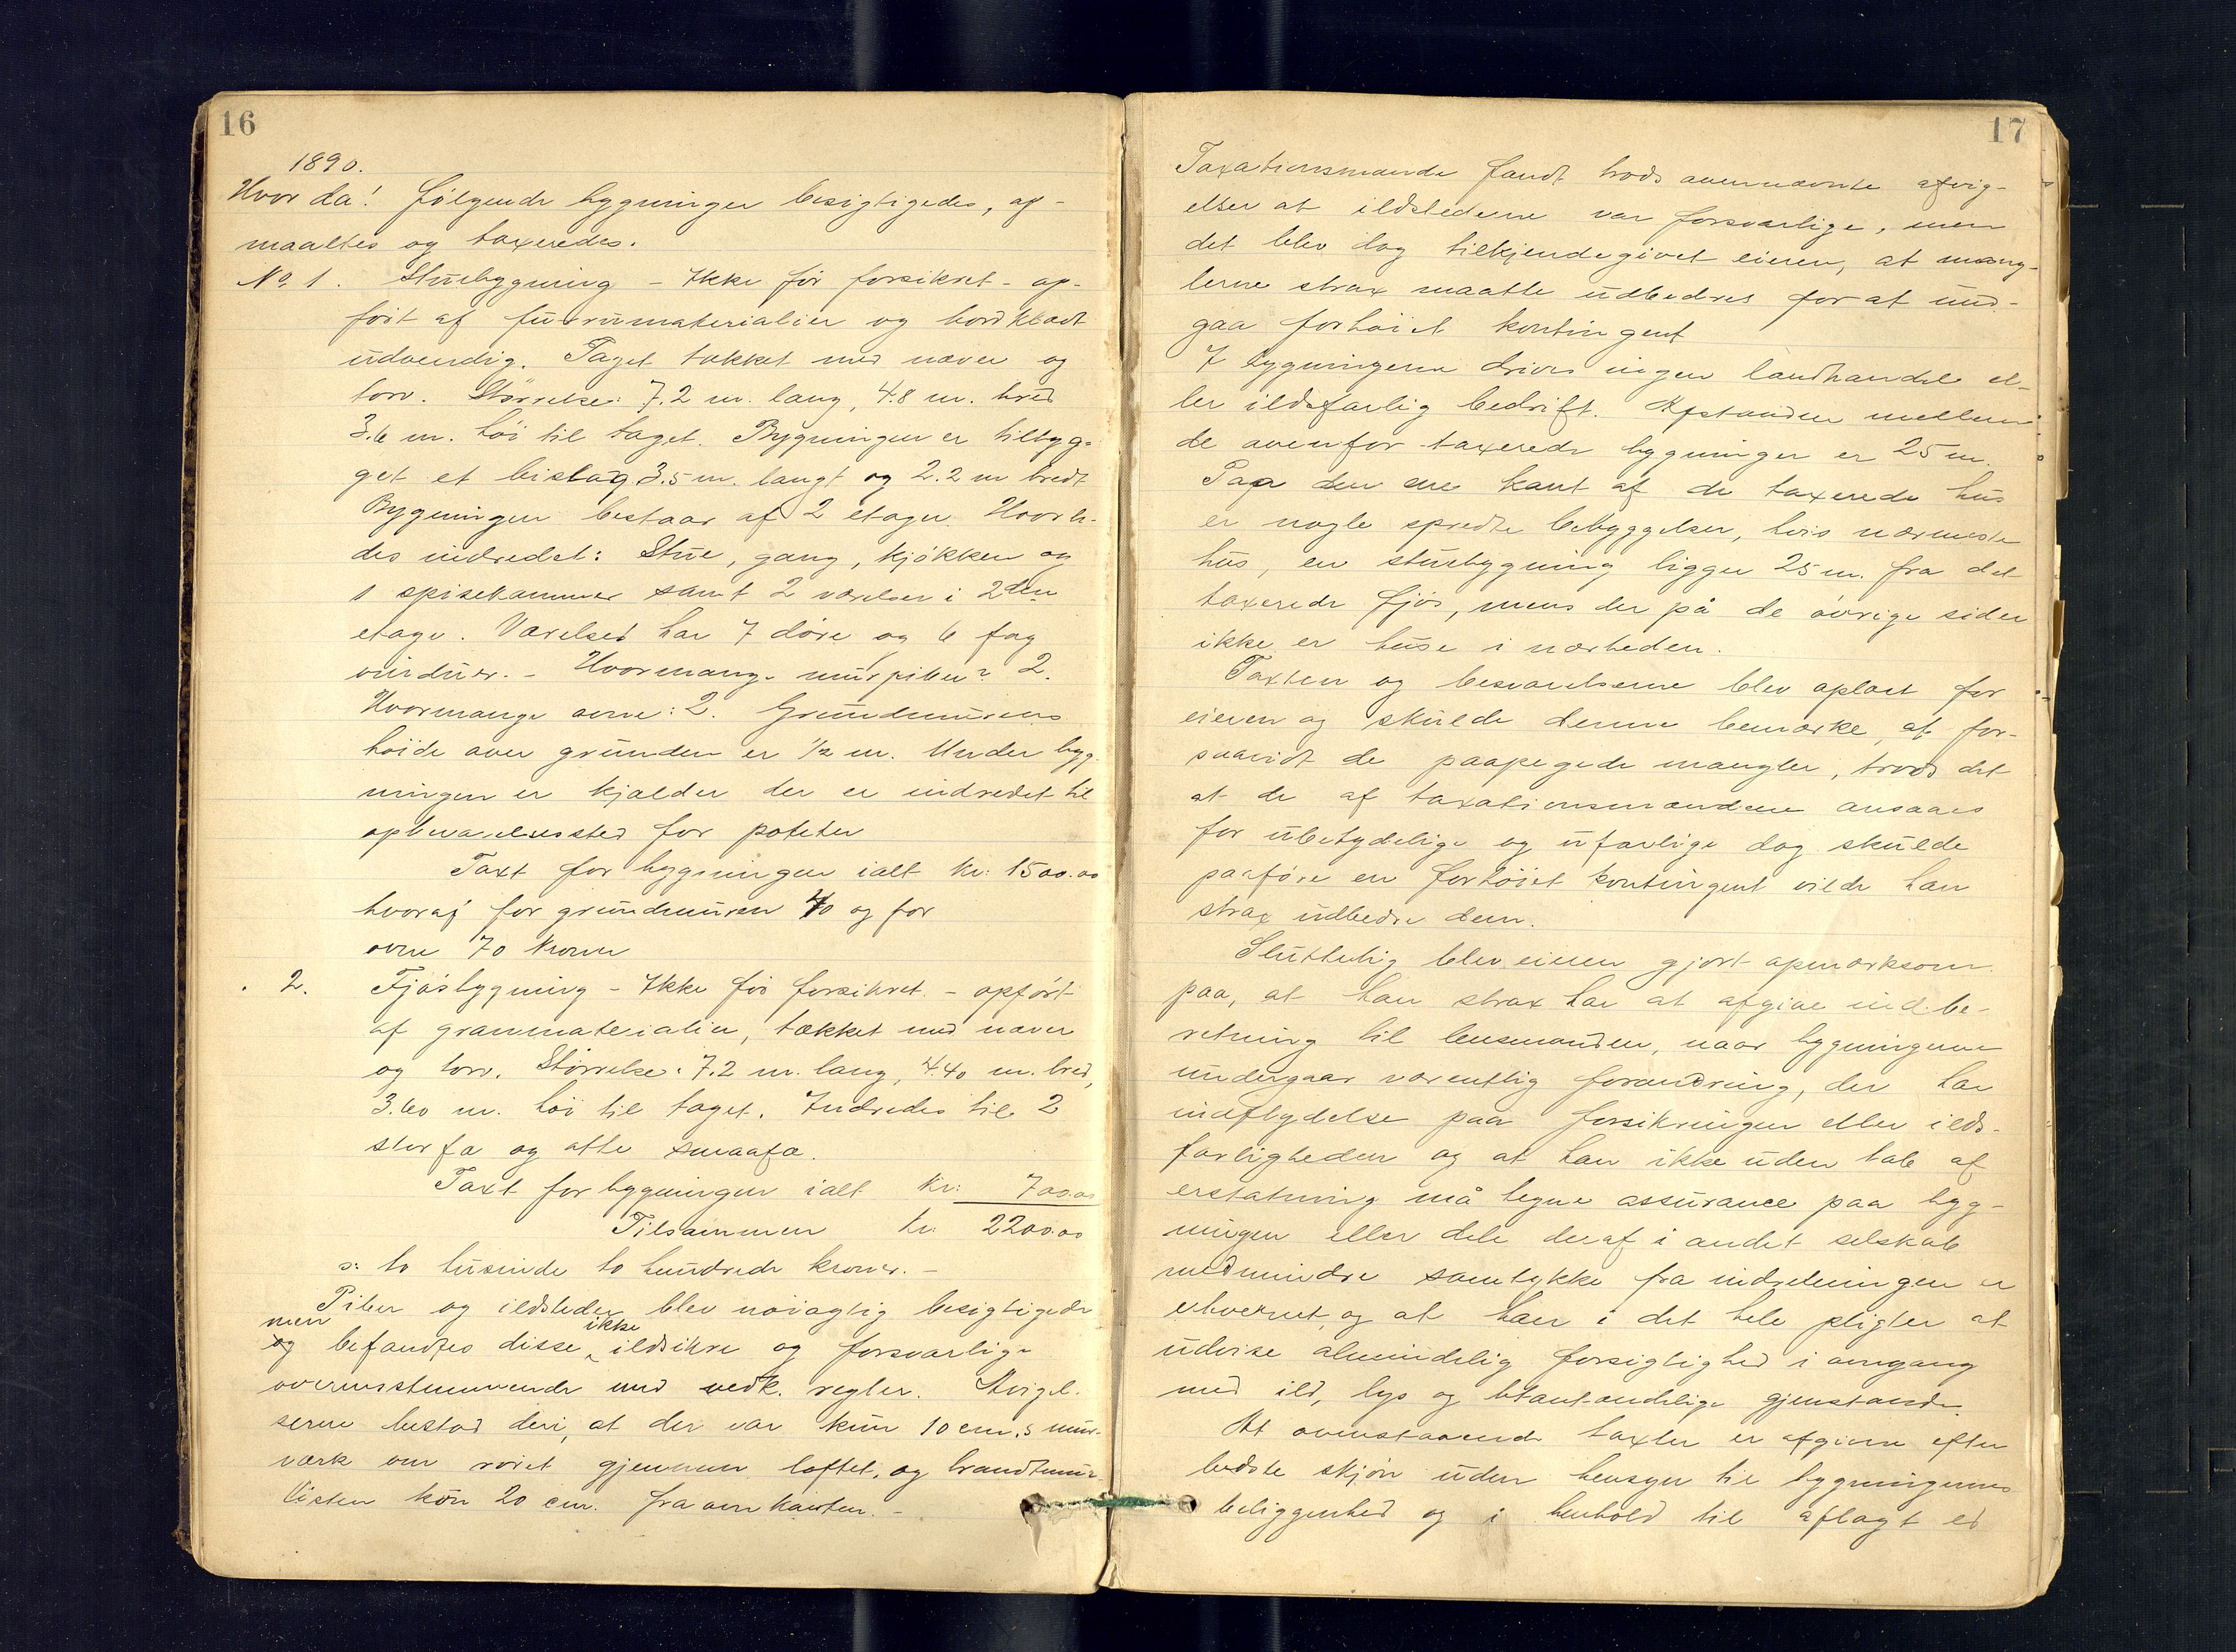 16
1890.
Hvor da! følgende bygninger besigtigedes, op-
maaltes og taxeredes.
No 1. Stuebygning - Ikke før forsikret - op-
ført af furrumaterialier og bordklædt
udvendig. Taget tækket med næver og
torv. Størrelse: 7.2 m. lang, 4.8 m. bred
3.6 m. høi til taget. Bygningen er tilbyg-
get et bislag 3.5 m. langt og 2.2 m bredt
Bygningen bestaar af 2 etager. Hvorle-
des indredet: Stue, gang, kjøkken og
1 spisekammer samt 2 værelser i 2den
etage. Værelset har 7 døre og 6 fag
vinduer. - Hvormange murpiber? 2.
Hvormange ovne: 2. Grundmurens
høide over grunden er 1/2 m. Under byg-
ningen er kjælder der er indredet til
opbevarelsessted for poteter
Taxt for bygningen ialt Kr: 1500.00
hvoraf for grundmuren 40 og for
ovne 70 Kroner
2. Fjøsbygning - Ikke før forsikret. - opført
af granmaterialier, tækket med næver
og torv. Størrelse: 7.2 m. lang, 4.40 m. bred,
3.60 m. høi til taget. Indredes til 2
storfæ og otte smaafæ.
Taxt for bygningen ialt Kr: 700.00
Tilsammen kr: 2200.00
o: to tusinde to hundrede kroner. -
Piber og ildsteder blev nøiagtig besigtigede
men ikke
og befandtes disse ildsikre og forsvarlige
overensstemmende med vedk. regler. Avigel-
serne bestod deri, at der var kun 10 cm.s mur-
værk om røret gjennem loftet, og brandmur
listen kon 20 cm. fra ovnkanten. -
17
Taxationsmænde fandt trods ovennævnte afvig-
elser at ildstederne var forsvarlige, men
det blev dog tilkjendegivet eieren, at mang-
lerne strax maatte udbedres for at und-
gaa forhøiet kontingent
I bygningerne drives ingen landhandel el-
ler ildsfarlig bedrift. Afstanden mellem
de ovenfor taxerede bygninger er 25 m.
Paa den ene kant af de taxerede hus
er nogle spredte bebyggelser, hvis nærmeste
hus, en stuebygning ligger 25 m. fra det
taxerede fjøs, mens der på de øvrige sider
ikke er huse i nærheden.
Taxten og besvarelserne blev oplæst for
eieren og skulde denne bemærke, at for-
saavidt de paapegede mangler, trods det
at de af taxationsmændene ansaaes
for ubetydelige og ufarlige dog skulde
paaføre en forhøiet kontingent vilde han
strax udbedre dem.
Sluttelig blev eieren gjort opmærksom
paa, at han strax har at afgive indbe-
retning til lensmanden, naar bygningerne
undergaar væsentlig forandring, der har
indflydelse paa forsikringen eller ilds-
farligheden og at han ikke uden tab af
erstatning må tegne assurance paa byg-
ningen eller dele deraf i andet selskab
medmindre samtykke fra indretningen er
erhvervet, og at han i det hele pligter at
udvise almindelig forsigtighed i omgang
med ild, lys og letantændelige gjenstande.
At ovenstaaende taxter er afgivne efter
bedste skjøn uden hensyn til bygningernes
beliggenhed og i henhold til aflagt ed